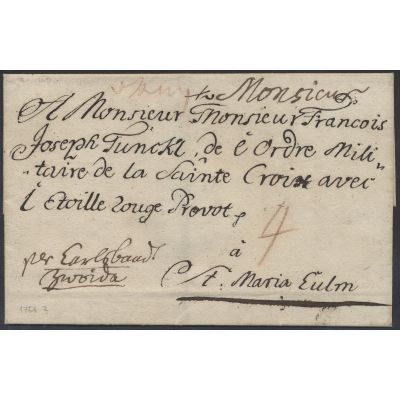 Monsieur
A Monsieur Monsieur Francois
Joseph Tunckl, de l Ordre Mili-
taire de la Sainte Croix avec
l Etoille rouge Prevot
4
à
St. Maria Culm
per Carlsbaad
Zwoida